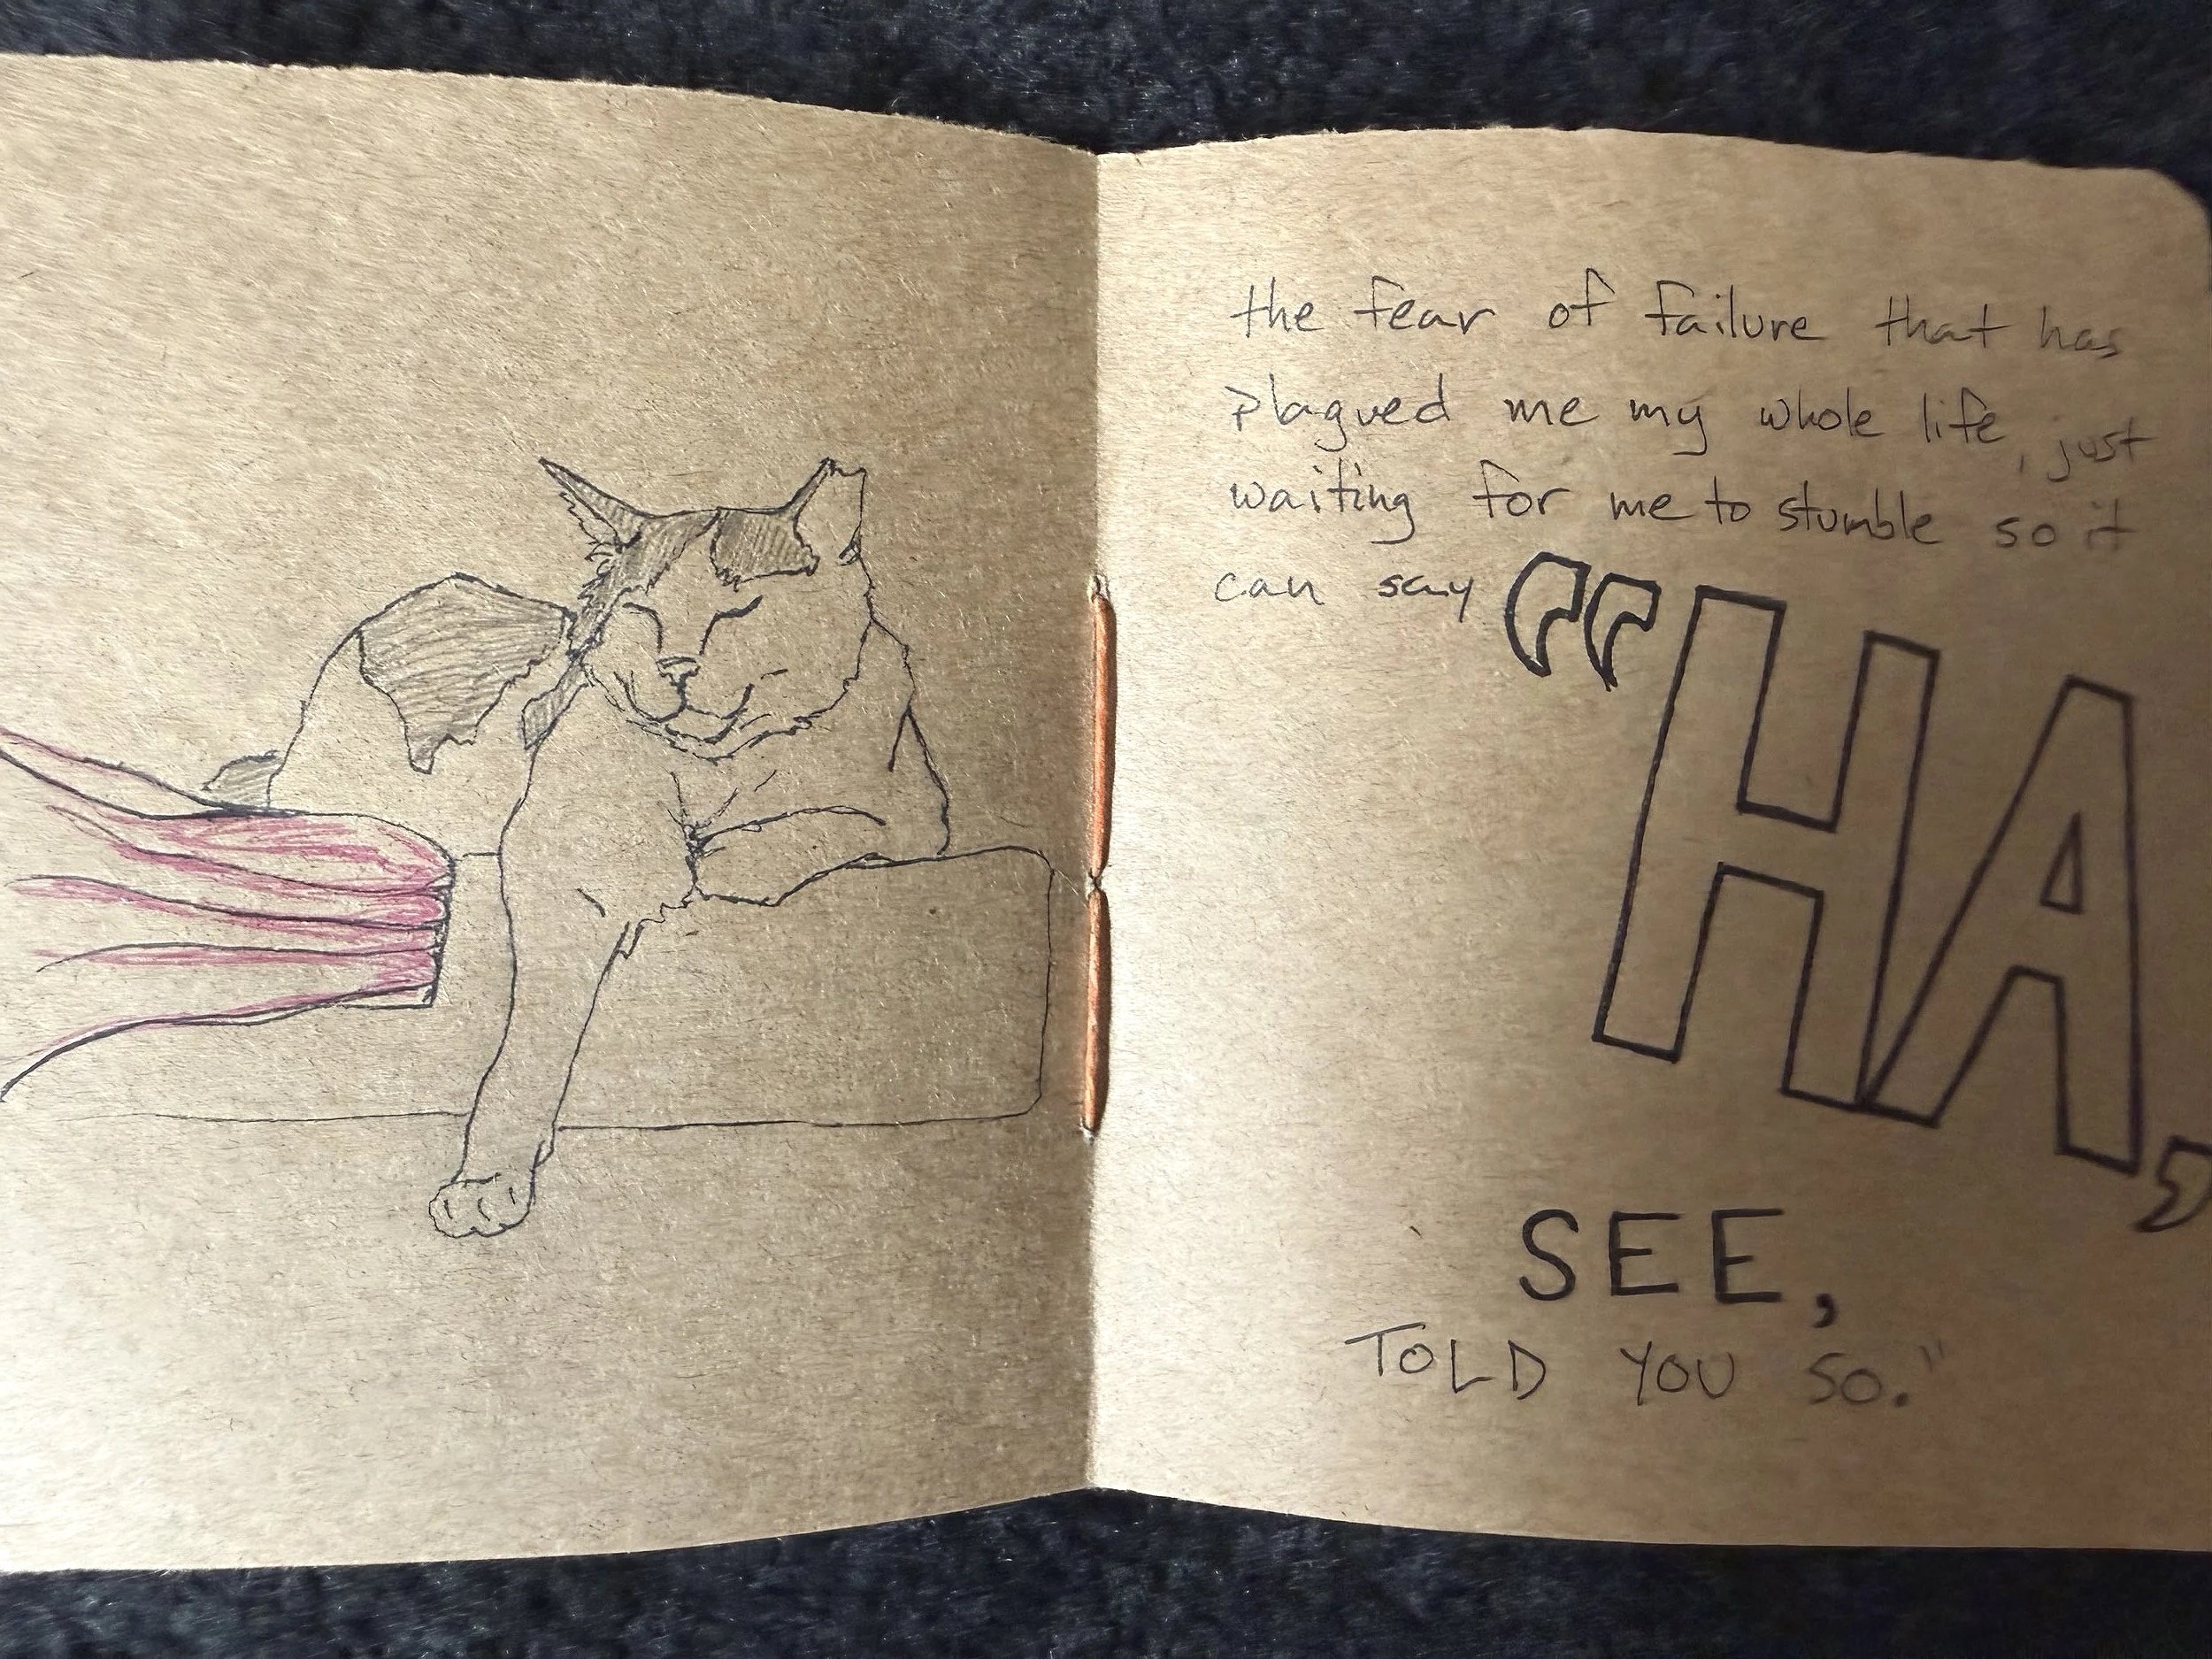 the fear of failure that has
plagued me my whole life, just
waiting for me to stumble so it
can say “HA,
SEE,
TOLD YOU SO."